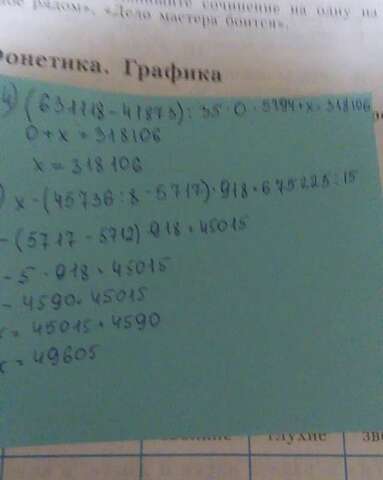 рядом», «Дело мастера боится».
сочинение на одну из
Фонетика. Графика
4) (631118-41873):35·0·5794+x=318106
0+x=318106
x=318106
) x-(45736:8-5712)·918=675225:15
-(5717-5712)·918=45015
-5·918=45015
-4590=45015
x=45015+4590
x=49605
глухие